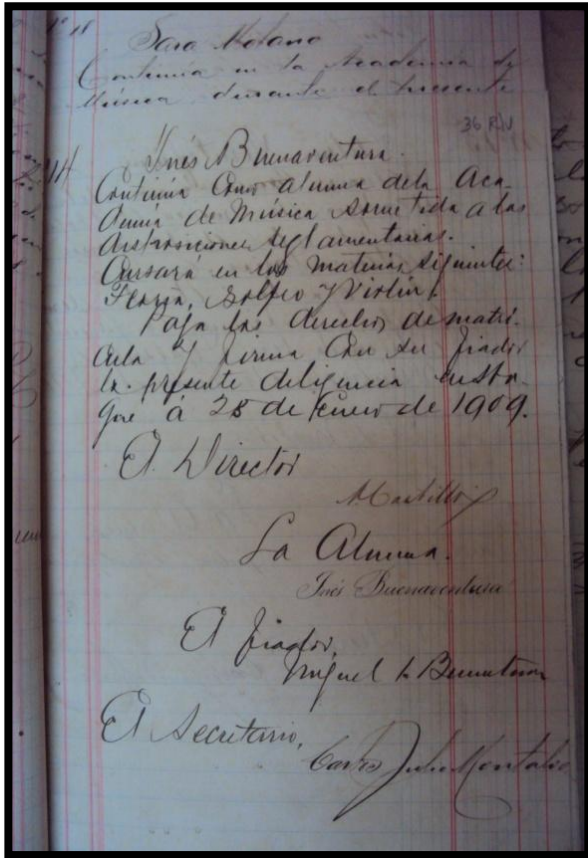 Nº 18
Sara Molano
Continúa en la Academia de
Música durante el presente
36 RJ
Inés Buenaventura.
Continúa como alumna dela Aca-
demia de Música sometida a las
disposiciones reglamentarias.
Cursará en las materias siguientes:
Teoría, Solfeo y Violín.
Paga los derechos de matrí-
cula y firma con su fiador
la presente diligencia en Bo-
gotá á 28 de Enero de 1909.
El Director
La Alumna.
Inés Buenaventura
El fiador,
Miguel
El Secretario,
Carlos Julio Montalvo